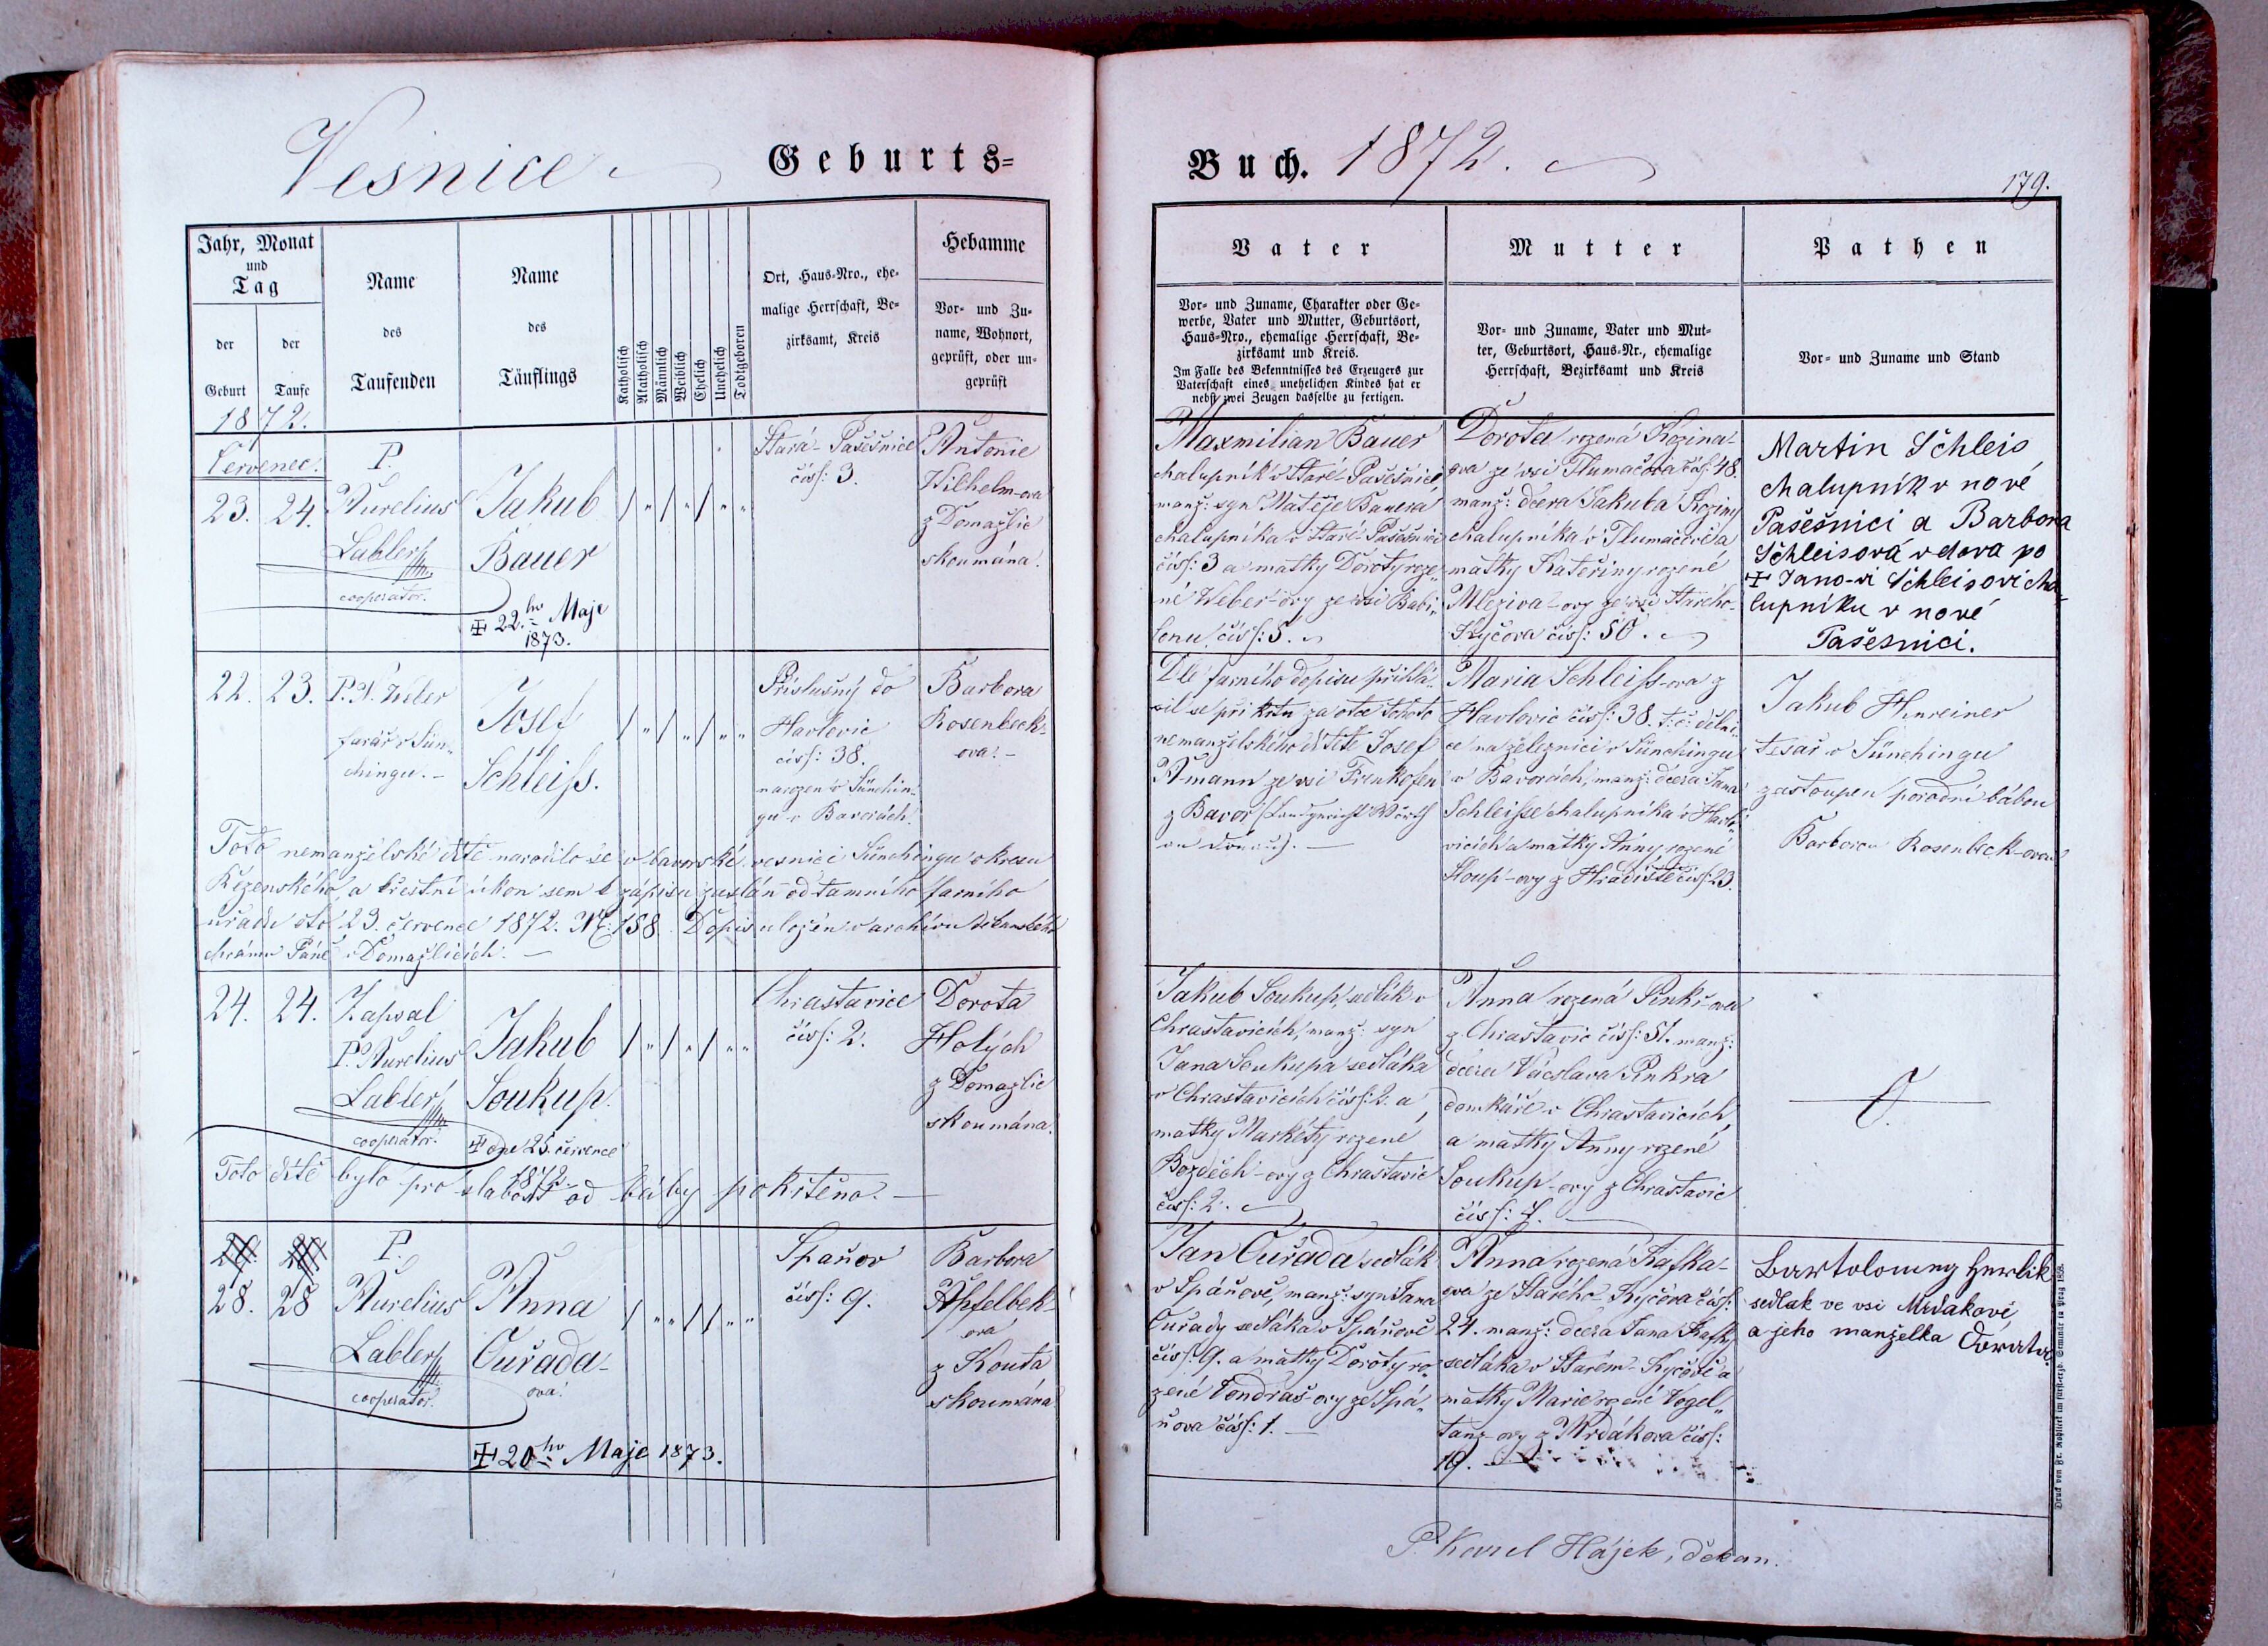 Vesnice
Geburts=
Jahr, Monat
und
Tag
der
Geburt
der
Taufe
Name
des
Taufenden
Name
des
Täuflings
Katholisch
Akatholisch
Männlich
Weiblich
Ehelich
Unehelich
Todtgeboren
Ort, Haus-Nro., ehe-
malige Herrschaft, Be-
zirksamt, Kreis
Hebamme
Vor- und Zu-
name, Wohnort,
geprüft, oder un-
geprüft
1872.
Červenec.
23. 24.
P.
Aurelius
Labler
cooperator.
Jakub
Bauer
22.ho Maje
1873.
Stará-Pasěsnice
čísl: 3.
Antonie
Wilhelm-ova
z Domažlic
skoumána.
22. 23.
P. Weber
farář v Sün-
chingu. –
Josef
Schleiss.
Příslušný do
Havlovic
čísl: 38.
narozen v Sünchin-
gu v Bavořích.
Barbora
Rosenbeck-
ova. –
Toto nemanželské dítě narodilo se v bavorské vesnici Sünchingu okresu
Řezenského, a křestní úkon sem k zápisu zaslán od tamního farního
úřadu dto 23. července 1872. N: 188. Dopis uložen v archivu děkanského
chrámu Páně v Domažlicích. –
24. 24.
Zapsal
P. Aurelius
Labler
cooperator.
Jakub
Soukup.
dne 25. července
1872.
Chrastavice
čísl: 2.
Dorota
Holých
z Domažlic
skoumána.
Toto dítě bylo pro slabost od báby pokřtěno. –
28. 28
P.
Aurelius
Labler
cooperator.
Anna
Cuřada-
ova.
20ho Maje 1873.
Spaňov
čísl: 9.
Barbora
Apfelbek-
ová
z Kouta
skoumána
Buch. 1872.
179.
Vater
Vor- und Zuname, Charakter oder Ge-
werbe, Vater und Mutter, Geburtsort,
Haus-Nro., ehemalige Herrschaft, Be-
zirksamt und Kreis.
Im Falle des Bekenntnisses des Erzeugers zur
Vaterschaft eines unehelichen Kindes hat er
nebst zwei Zeugen dasselbe zu fertigen.
Mutter
Vor- und Zuname, Vater und Mut-
ter, Geburtsort, Haus-Nr., ehemalige
Herrschaft, Bezirksamt und Kreis
Pathen
Vor- und Zuname und Stand
Maxmilian Bauer
chalupník v Staré-Pasěsnici,
manž: syn Matěje Bauera
chalupníka v Staré-Pasěsnici
čísl: 3 a matky Doroty roze-
né Weber-ovy ze vsi Babi-
lonu čísl: 5.
Dorota rozená Kozina-
ova ze vsi Tlumačova čísl: 48.
manž: dcera Jakuba Koziny
chalupníka v Tlumačově a
matky Kateřiny rozené
Mleziva-ovy ze vsi Starého-
Kyčova čísl: 50.
Martin Schleis
chalupník v nové
Pašešnici a Barbora
Schleisová vdova po
Jano-vi Schleisovi cha-
lupníku v nové
Pašesnici.
Dle farního dopisu přihlá-
sil se při křtu za otce tohoto
nemanželského dítěte Josef
Amann ze vsi Frenkofen
z Bavor (Landgericht Wörth
an Donau). –
Maria Schleiss-ova z
Havlovic čísl: 38. t: č: dělni-
ce na železnici v Sünchingu
v Bavorách, manž: dcera Jana
Schleisse chalupníka v Havlo-
vicích a matky Anny rozené
Sloup-ovy z Hradiště čísl: 23.
Jakub
tesař v Sünchingu
zastoupen porodní bábou
Barborou Rosenbeck-ovou
Jakub Soukup, sedlák v
Chrastavicích, manž: syn
Jana Soukupa sedláka
v Chrastavicích čísl: 2. a
matky Markéty rozené
Bozděch-ovy z Chrastavic
čísl: 2.
Anna rozená Pinkr-ova
z Chrastavic čísl: 51. manž:
dcera Václava Pinkra
domkáře v Chrastavicích,
a matky Anny rozené
Soukup-ovy z Chrastavic
čísl: 4.
Jan Cuřada sedlák
v Spáňově, manž: syn Jana
Cuřady sedláka v Spáňově
čísl: 9. a matky Doroty ro-
zené Vondraš-ovy ze Spá-
ňova čísl: 1. –
Anna rozená Kafka-
ova ze Starého-Kyčova čísl:
24. manž: dcera Jana Kafky
sedláka v Starém-Kyčově a
matky Marie rozené Vogel-
tanz-ovy z Mrdákova čísl:
19. –
Bartolomej Herlik
sedlak ve vsi Mrdakově,
a jeho manželka Dorota.
P. Karel Hájek, děkan.
Druck von Fr. Rohlicek im fürst-erzb. Seminär in Prag 1859.